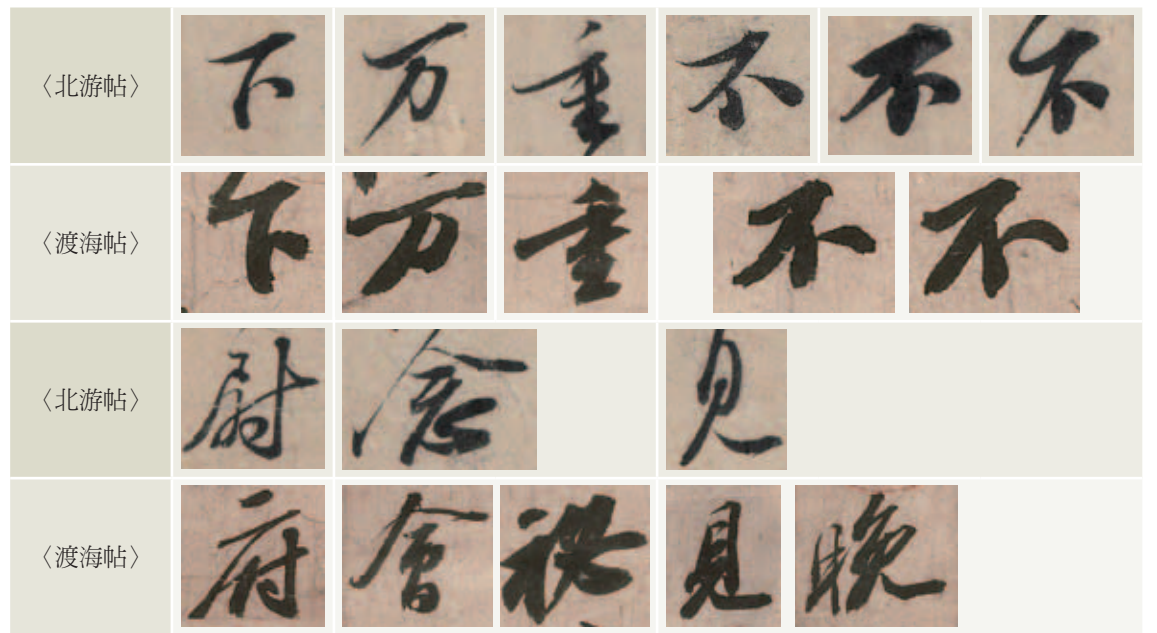 〈北游帖〉 下 万 重 不 不 不
〈渡海帖〉 下 万 重 不 不
〈北游帖〉 尉 念 見
〈渡海帖〉 府 會 見 晚